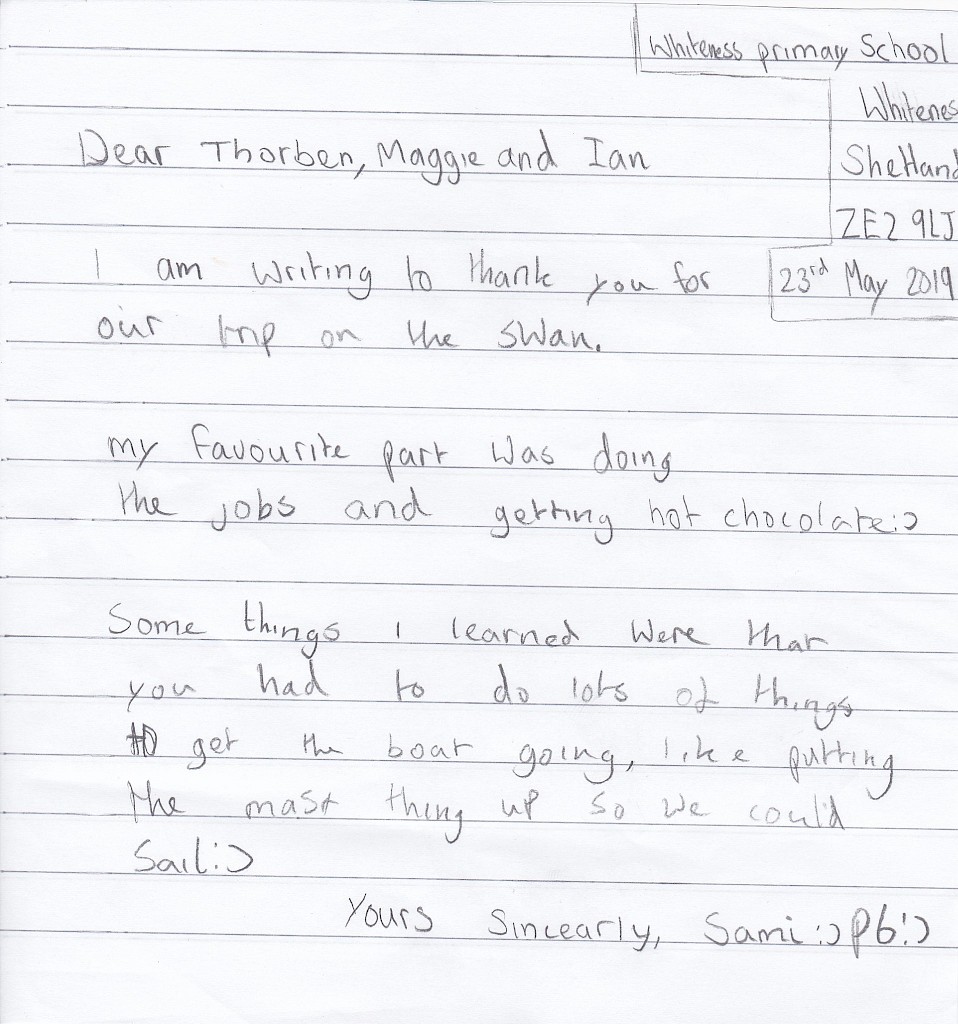 Whiteness primary School
Whitenes
Shetland
ZE2 9LJ
23rd May 2019
Dear Thorben, Maggie and Ian
I am writing to thank you for
our trip on the swan.
my favourite part was doing
the jobs and getting hot chocolate:)
Some things I learned were that
you had to do lots of things
to get the boat going, like putting
the mast thing up so we could
Sail:)
Yours Sincearly, Sami:) P6:)